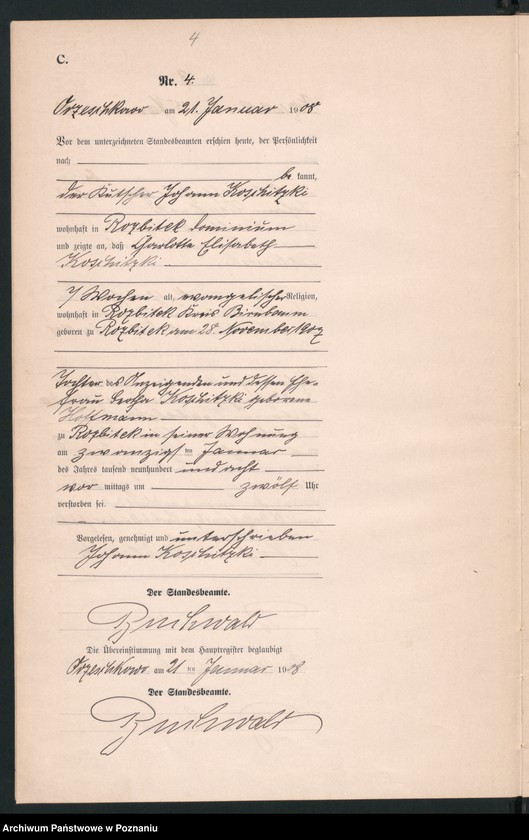 4
C.
Nr. 4.
Orzeschkowo am 21. Januar 1908
Vor dem unterzeichneten Standesbeamten erschien heute, der Persönlichkeit
nach
be kannt,
der Kutscher Johann Koschitzki
wohnhaft in Rozbitek Dominium
und zeigte an, daß Charlotte Elisabeth
Koschitzki
7 Wochen alt, evangelischer Religion,
wohnhaft in Rozbitek Kreis Birnbaum
geboren zu Rozbitek am 28. November 1907
Tochter des Anzeigenden und dessen Ehe-
frau Koschitzki geborene
zu Rozbitek in seiner Wohnung
am zwanzigsten Januar
des Jahres tausend neunhundert und acht
vor mittags um zwölf Uhr
verstorben sei.
Vorgelesen, genehmigt und unterschrieben
Johann Koschitzki
Der Standesbeamte.
Buchwald
Die Übereinstimmung mit dem Hauptregister beglaubigt
Orzeschkowo am 21 ten Januar 1908
Der Standesbeamte.
Buchwald
Archiwum Państwowe w Poznaniu